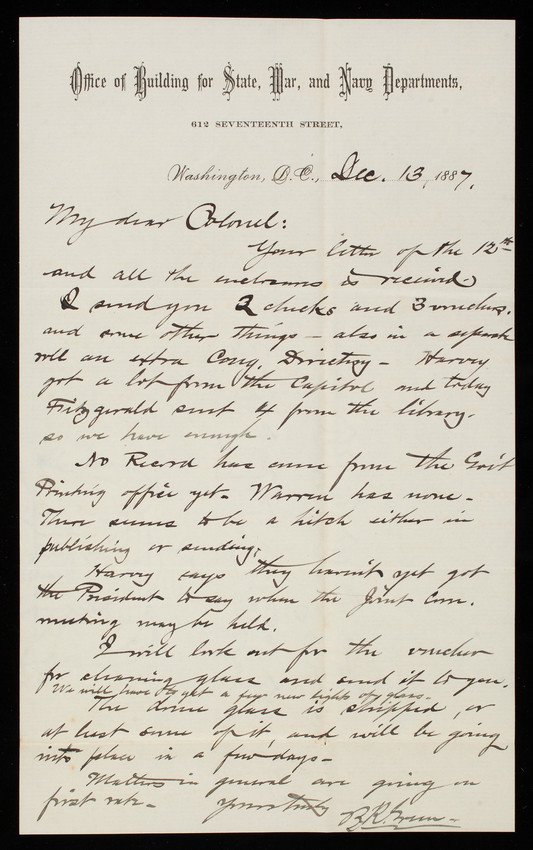 Office of Building for State, War, and Navy Departments,
612 SEVENTEENTH STREET,
Washington, D.C., Dec. 13, 1887.
My dear Colonel:
Your letter of the 12th
and all the enclosures is received.
I send you 2 checks and 3 vouchers.
and some other things - also in a separate
roll an extra Cong. Directory - Harvey
got a lot from the Capitol and today
Fitzgerald sent 4 from the library.
so we have enough.
No Record has come from the Gov't
Printing office yet - Warren has none -
There seems to be a hitch either in
publishing or sending.
Harvey says they haven't yet got
the President to say when the Joint Com.
meeting may be held.
I will look out for the voucher
for cleaning glass and send it to you.
We will have to get a few new lights of glass -
The glass is shipped, or
at least some of it, and will be going
into place in a few days -
Matters in general are going on
first rate - Yours truly
B.R. Green -